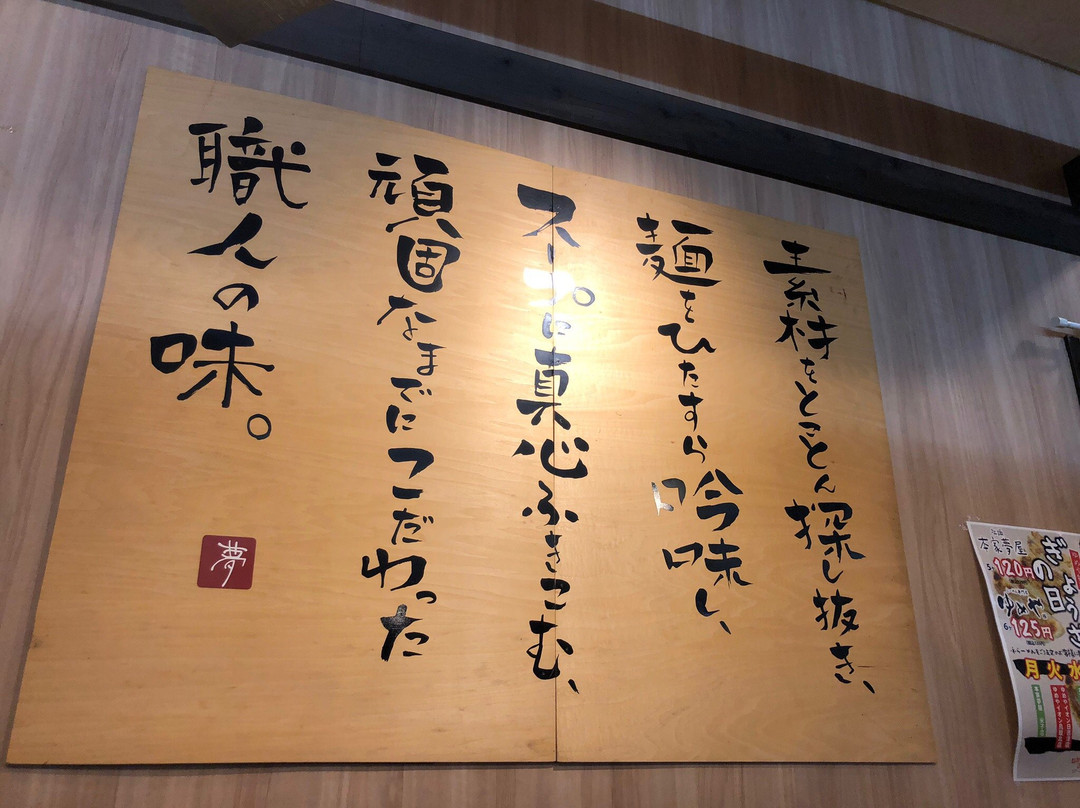 素材をとことん探し抜き、
麺をひたすら吟味し、
スープに真心ふきこむ、
頑固なまでにこだわった
職人の味。
夢
本家夢屋
ぎょうざ
の日
5コ120円
ゆめや。
6コ125円
月火水